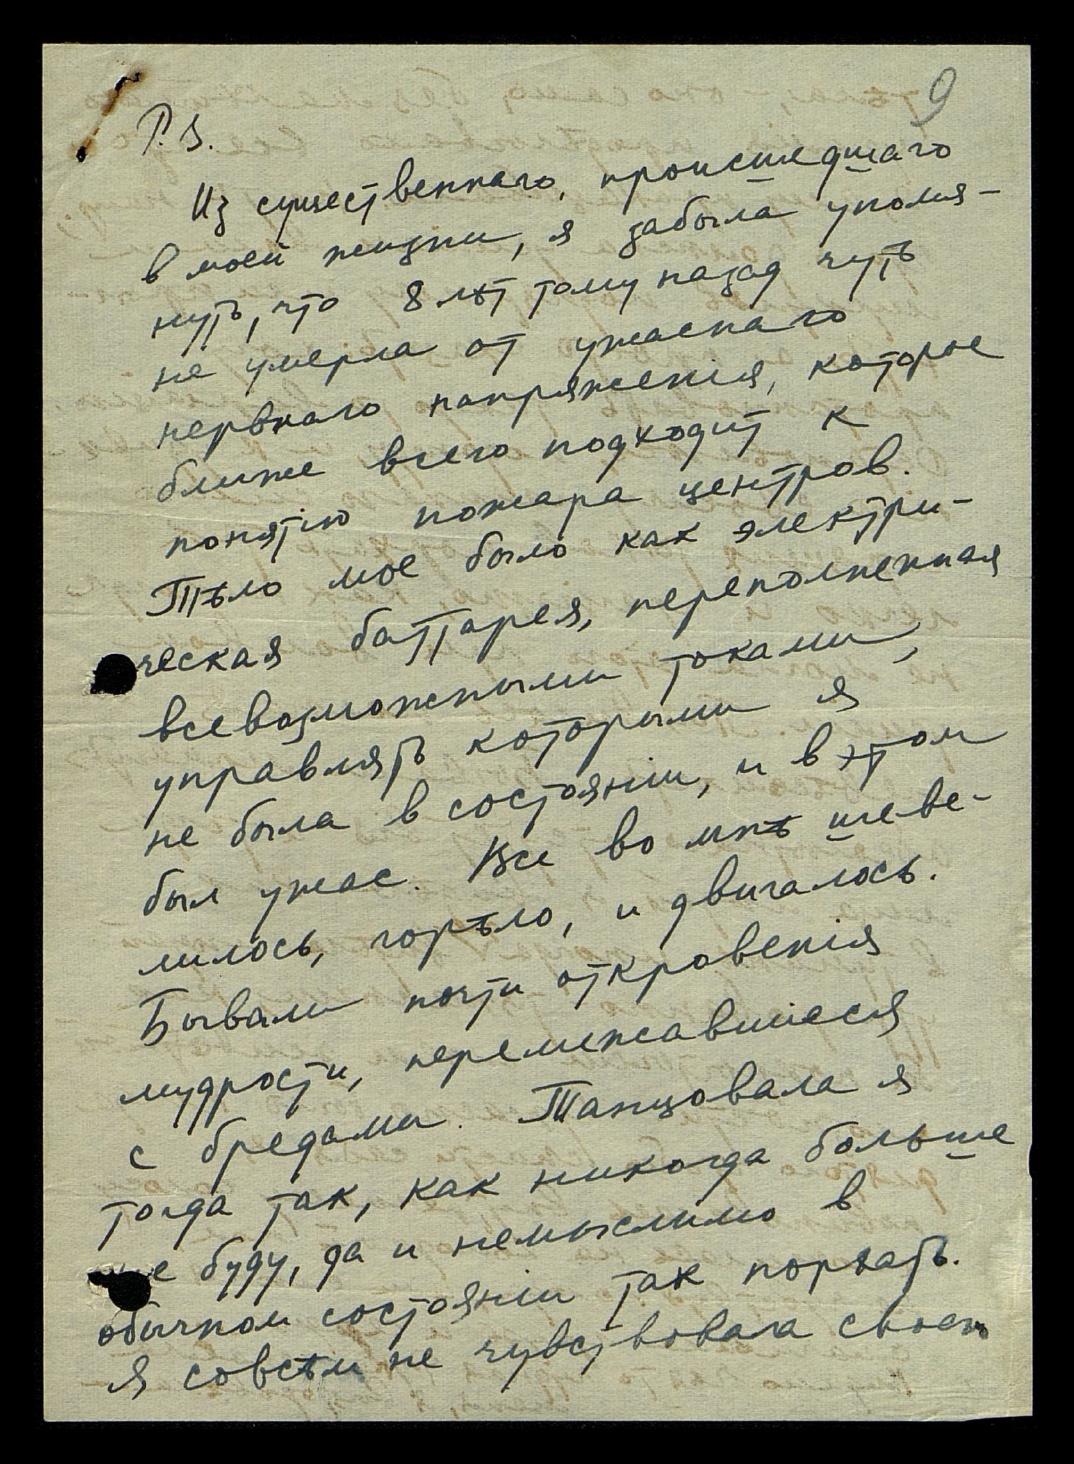 9
P.S.
Из существеннаго, происшедшаго
в моей жизни, я забыла упомя-
нуть, что 8 лѣт тому назад чуть
не умерла от ужаснаго
нервнаго напряженія, которое
ближе всего подходит к
понятію пожара центров.
Тѣло мое было как электри-
ческая баттарея, переполненная
всевозможными токами,
управлять которыми я
не была в состояніи, и в этом
был ужас. Все во мнѣ шеве-
лилось, горѣло, и двигалось.
Бывали почти откровенія
мудрости, перемежавшіеся
с бредами. Танцовала я
тогда так, как никогда больше
не буду, да и немыслимо в
обычном состояніи так порхать.
Я совсѣм не чувствовала своего